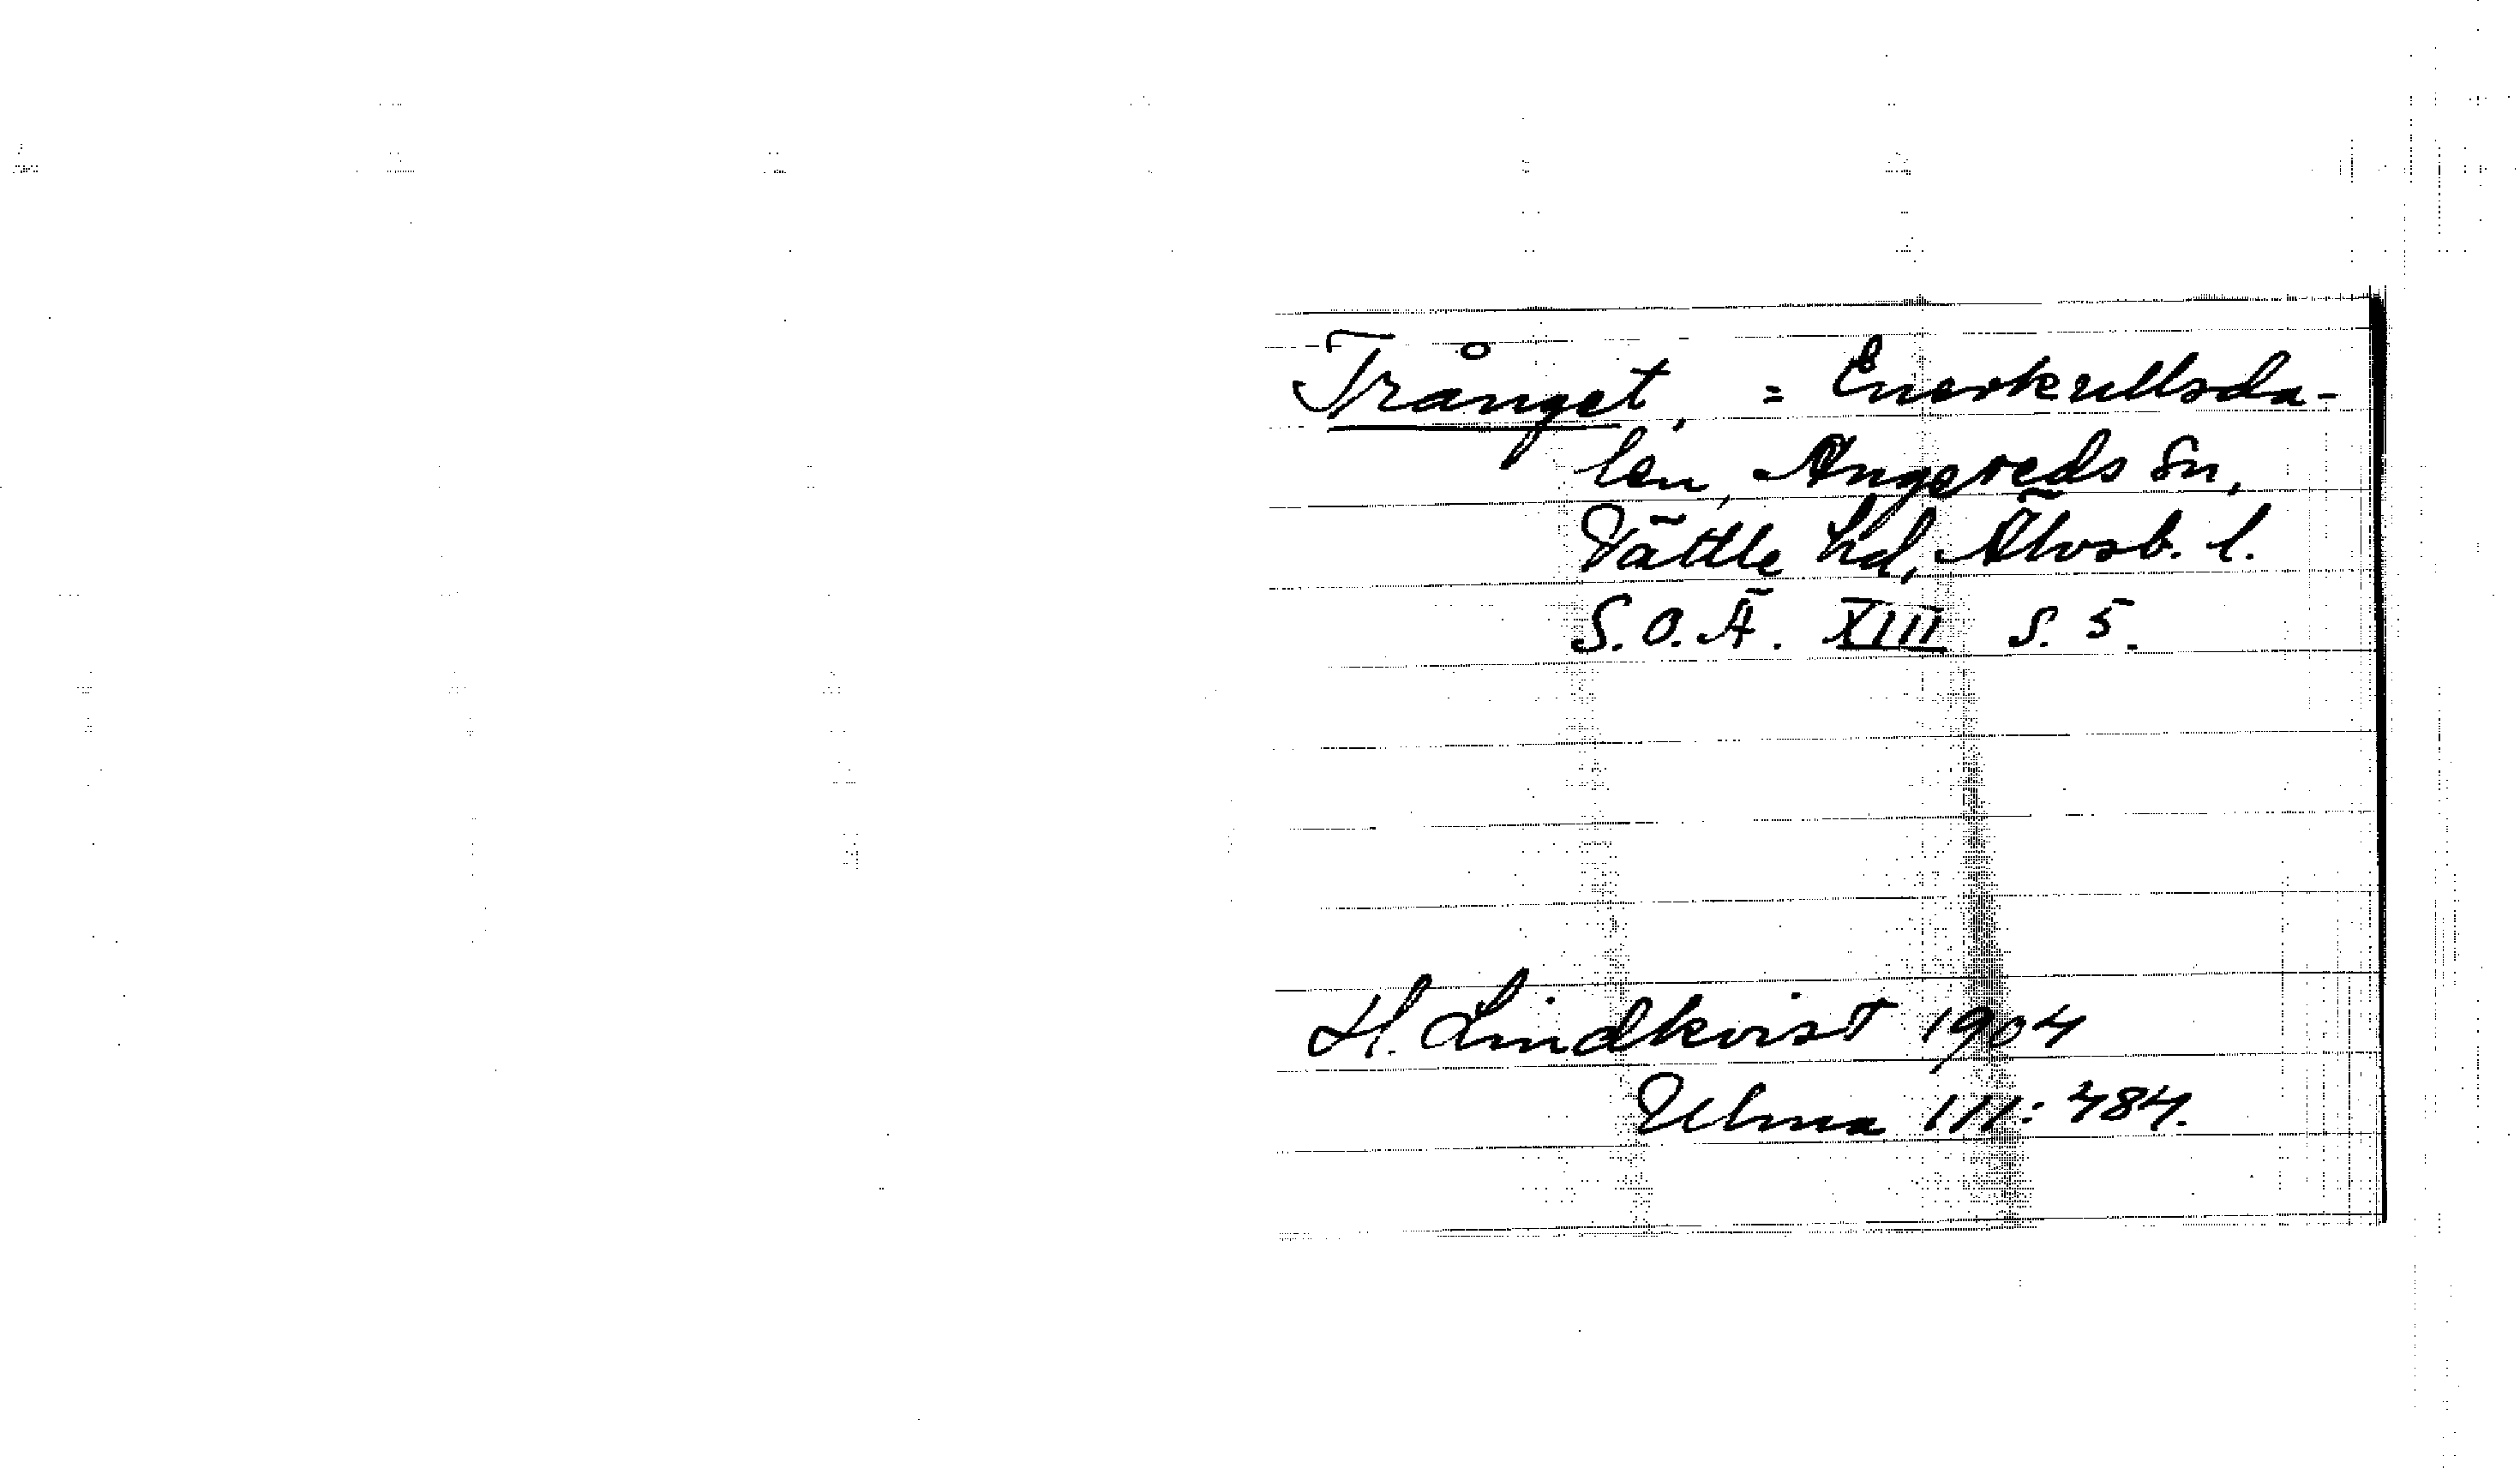 Trånget, = Enerkullsda-
len, Angereds Sn,
Vättle hd, Älvsb. l.
S.O.Ä. XIII S. 5.
H. Lindkvist 1904
Ulma 111: 484.